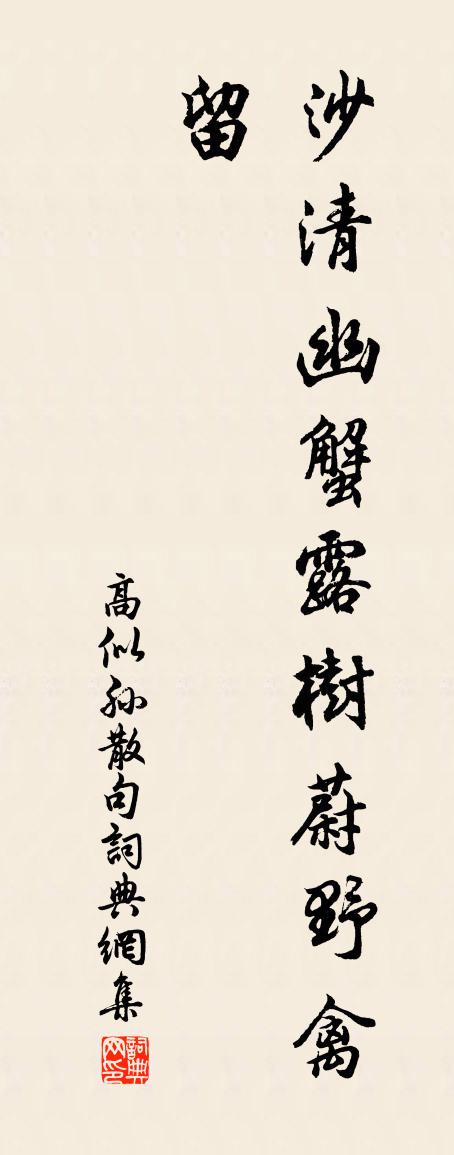 沙清幽蟹露樹蔚野禽
留
高似孫散句詞典網集
詞典网印